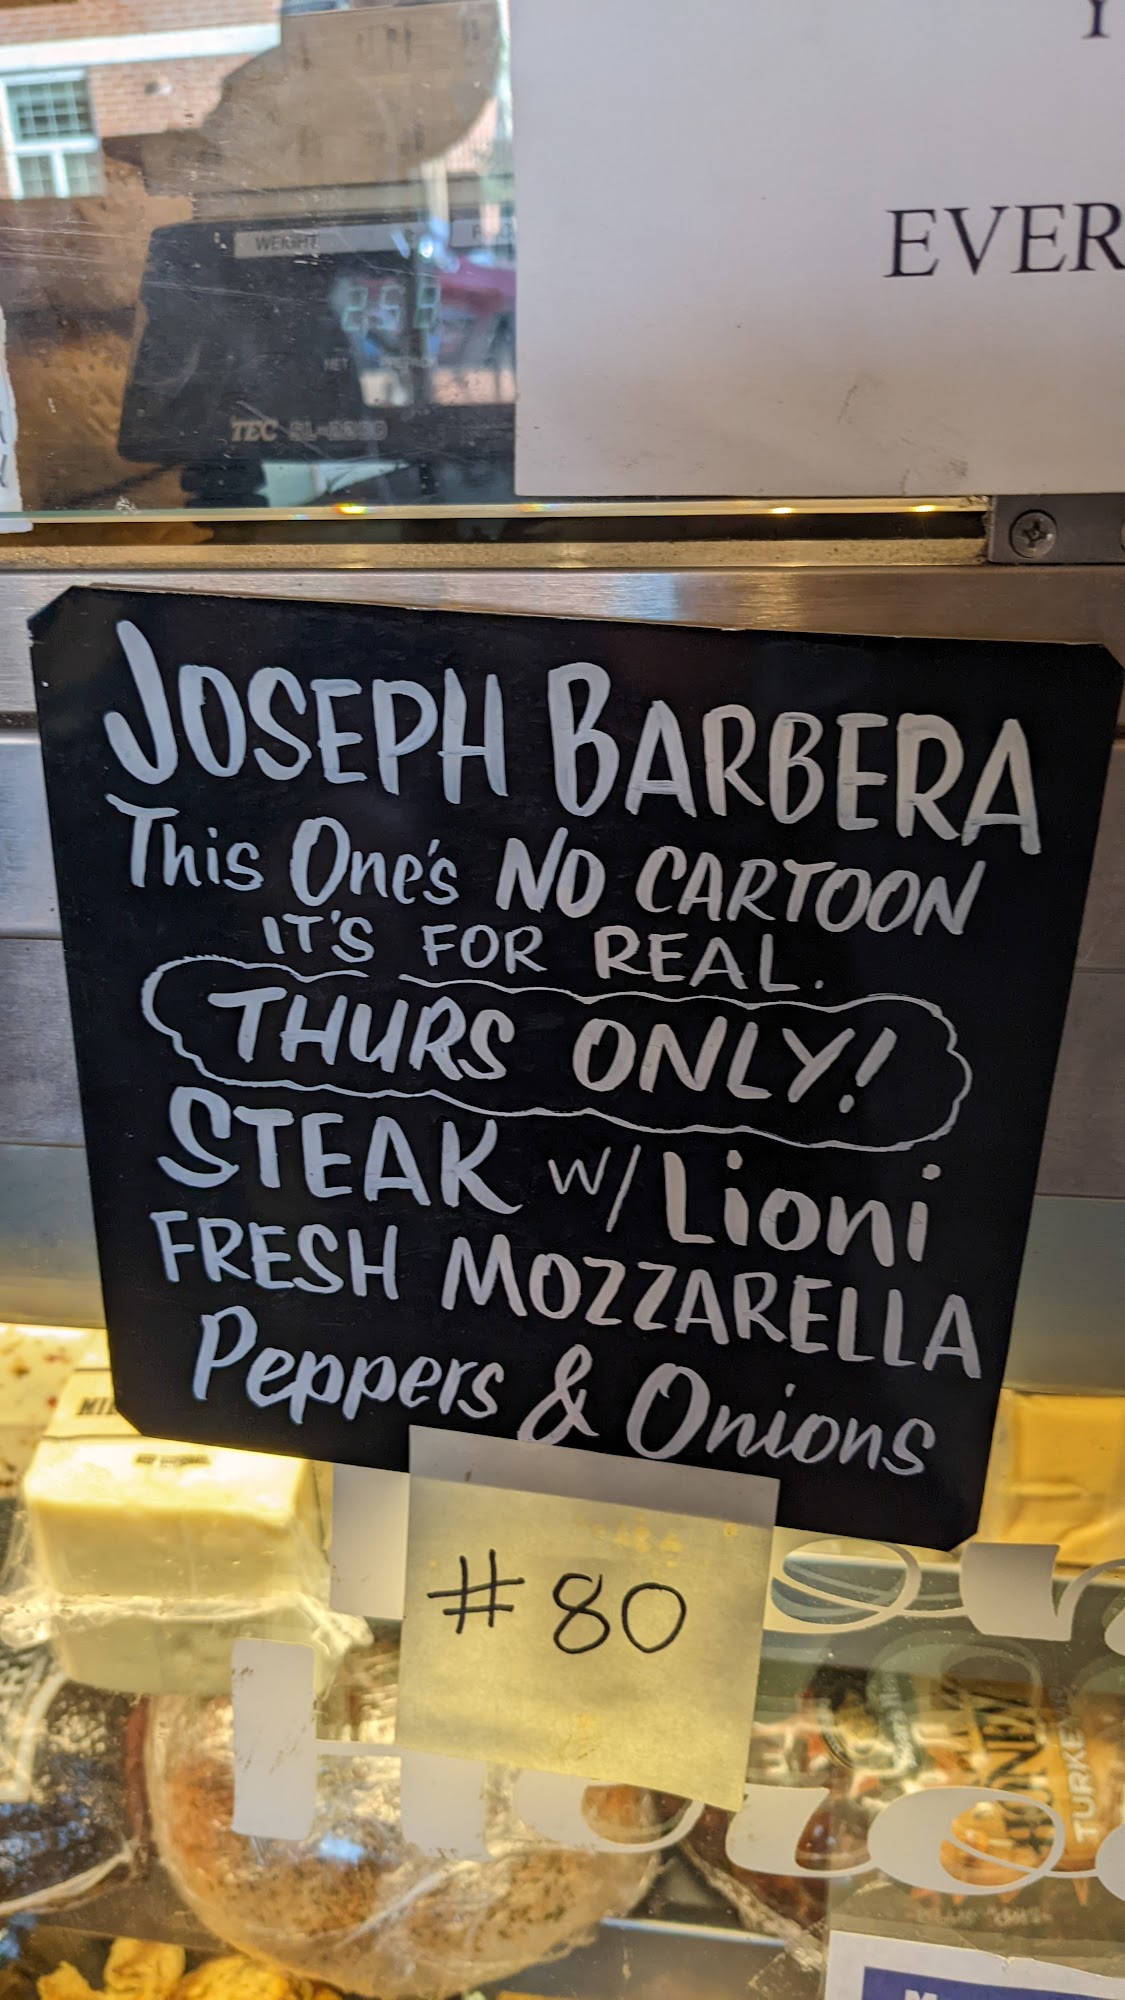 Y
EVER
WEIGHT
TEC SL-2200
JOSEPH BARBERA
This One's NO CARTOON
IT'S FOR REAL.
THURS ONLY!
STEAK w/ Lioni
FRESH MOZZARELLA
Peppers & Onions
#80
HONEY
TURKEY